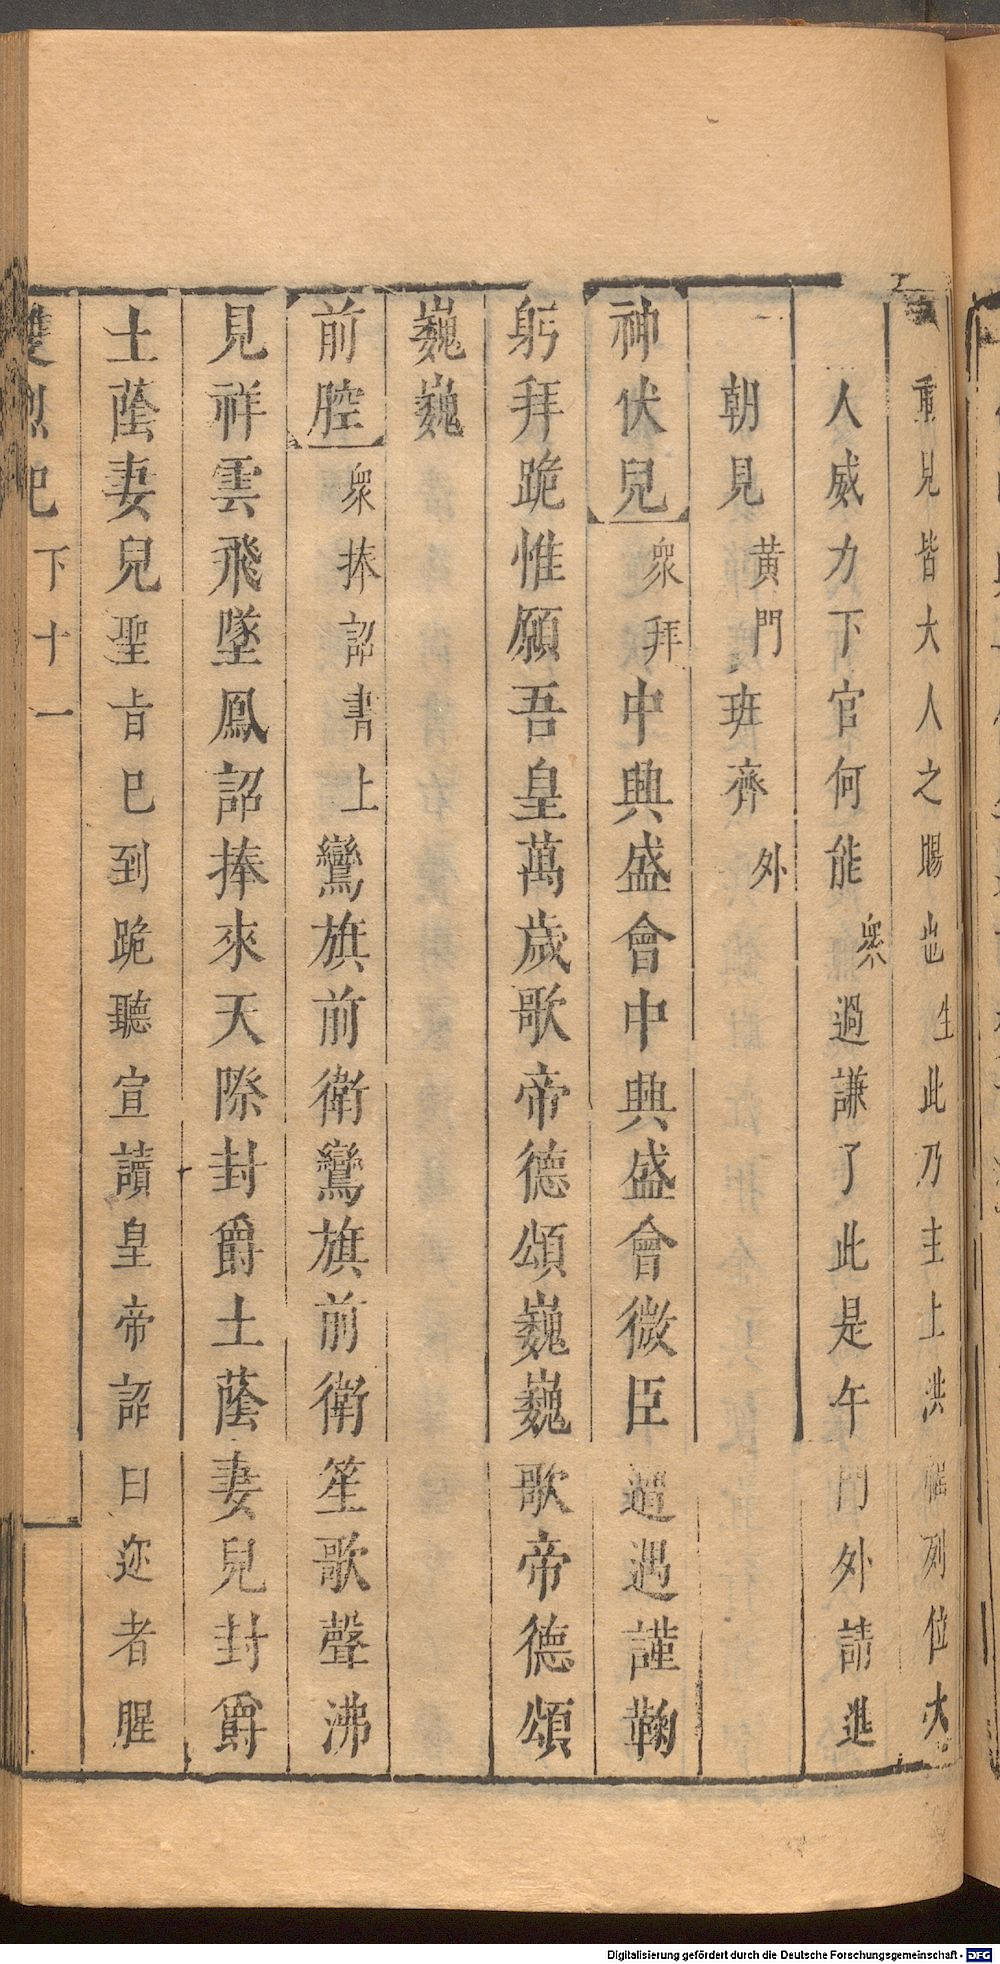 重見皆大人之賜也生此乃主上洪福列位大
人威力下官何能眾過謙了此是午門外請進
朝見黃門班齊外
神伏兒眾拜中興盛會中興盛會微臣遭遇謹鞠
躬拜跪惟願吾皇萬歲歌帝德頌巍巍歌帝德頌
巍巍
前腔眾捧詔書上鸞旗前衛鸞旗前衛笙歌聲沸
見祥雲飛墜鳳詔捧來天際封爵土蔭妻兒封爵
土蔭妻兒聖旨巳到跪聽宣讀皇帝詔曰迩者腥
雙烈記 下 十一
Digitalisierung gefördert durch die Deutsche Forschungsgemeinschaft - DFG